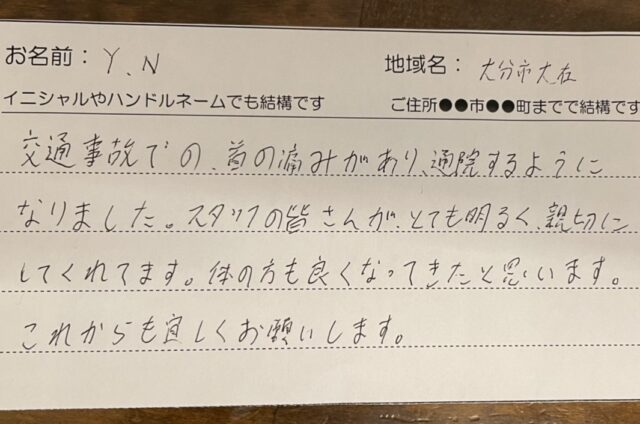 お名前： Y、N
地域名： 大分市大在
イニシャルやハンドルネームでも結構です
ご住所●●市●●町までで結構です
交通事故での、首の痛みがあり、通院するように
なりました。スタッフの皆さんが、とても明るく、親切に
してくれてます。体の方も良くなってきたと思います。
これからも宜しくお願いします。